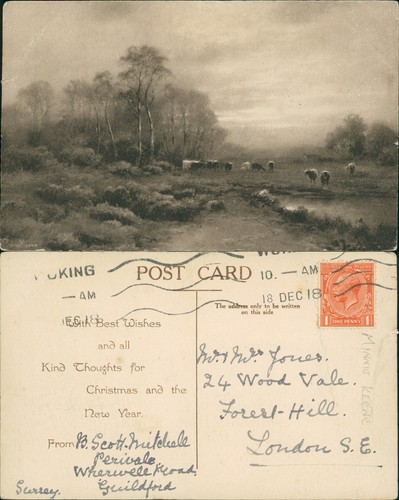 WOKING
— AM
DEC 18
POST CARD
10. — AM
18 DEC 18
The address only to be written
on this side
ONE PENNY
1 1
With Best Wishes
and all
Kind Thoughts for
Christmas and the
New Year.
From B. Scott-Mitchell
Perivale
Wherwell Road,
Guildford
Surrey.
Mr & Mrs Jones.
24 Wood Vale.
Forest-Hill.
London S.E.
MINNIE